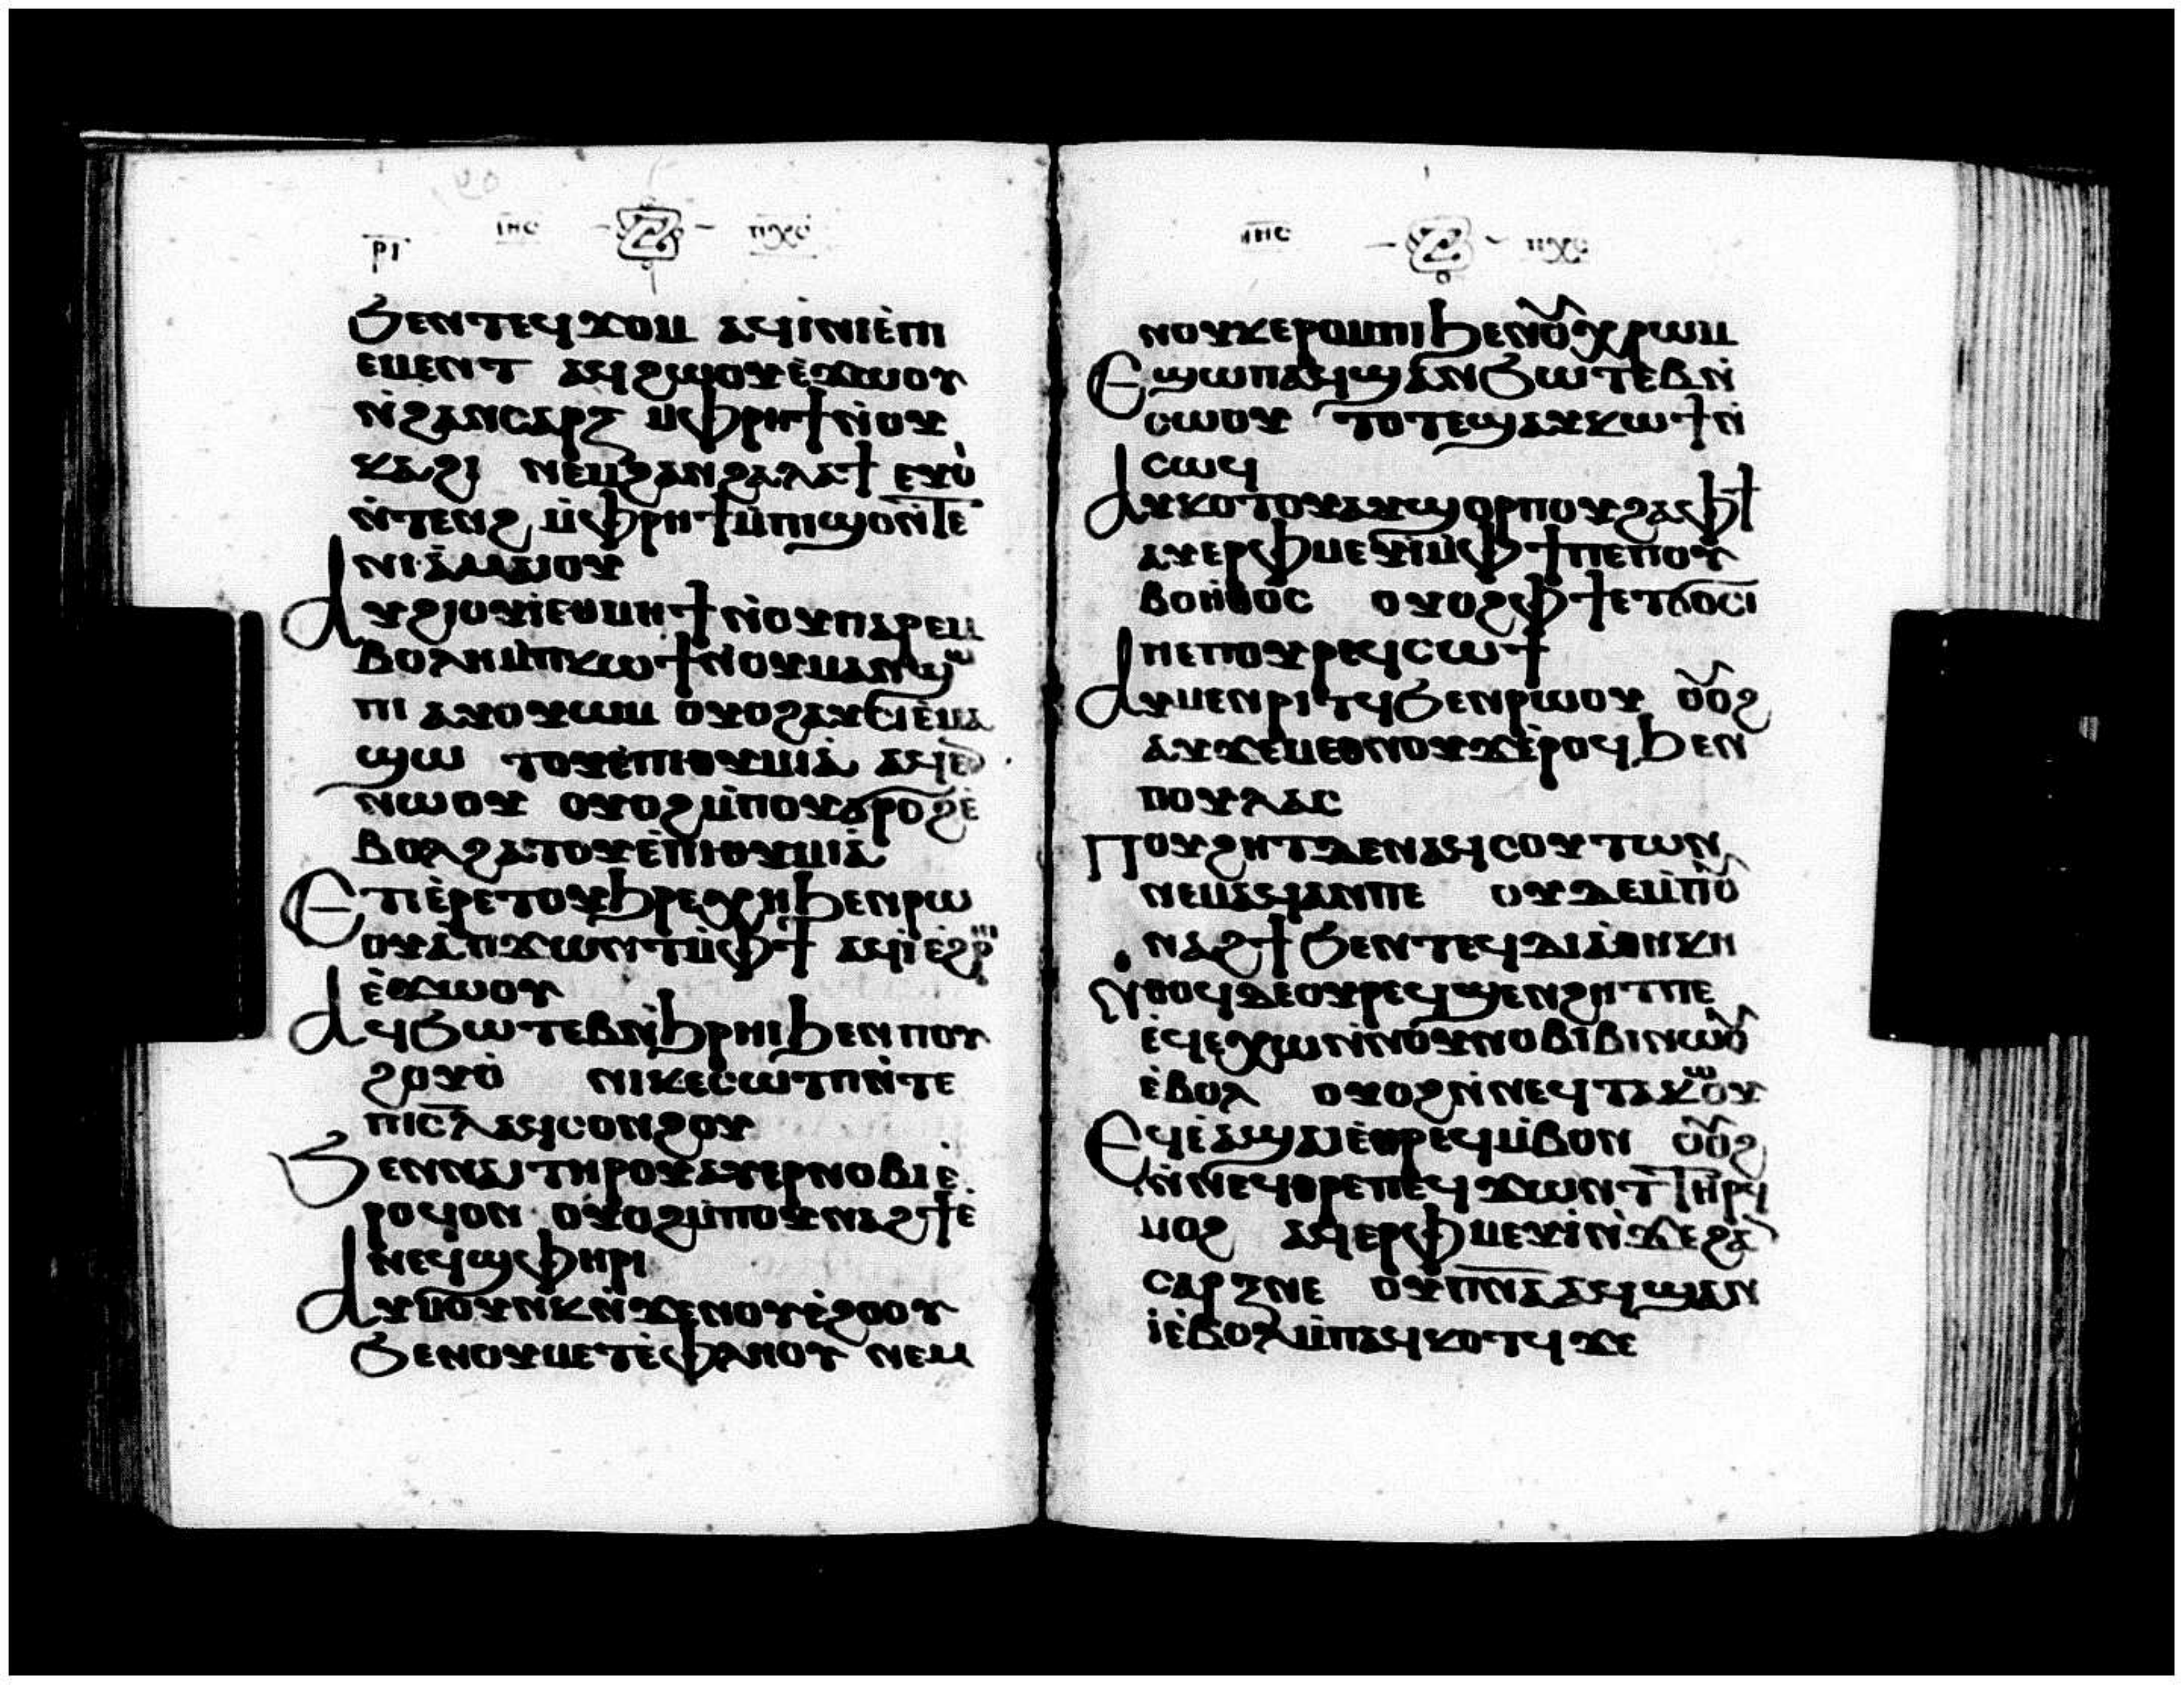 ⲣⲓ ⲓⲏⲥ ⲡⲭⲥ
ϧⲉⲛⲧⲉϥϫⲟⲙ ⲁϥⲓ̀ⲛⲓⲉ̀ⲡⲓ
ⲉⲙⲉⲛⲧ ⲁϥϩⲱⲟⲩⲉ̀ϫⲱⲟⲩ
ⲛ̀ϩⲁⲛⲥⲁⲣⲝ ⲙ̀ⲫⲣⲏϯⲛ̀ⲟⲩ
ⲕⲁϩⲓ ⲛⲉⲙϩⲁⲛϩⲁⲗⲁϯ ⲉⲩⲟ̀
ⲛ̀ⲧⲉⲛϩ ⲙ̀ⲫⲣⲏϯⲙ̀ⲡⲓϣⲟⲛ̀ⲧⲉ
ⲛⲓⲁ̀ⲙⲁⲓⲟⲩ
ⲁⲩϩⲓⲟⲩⲓ̀ⲉⲑⲙⲏϯⲛ̀ⲟⲩⲡⲁⲣⲉⲙ
ⲃⲟⲗⲏⲙ̀ⲡⲕⲱϯⲛ̀ⲟⲩⲙⲁⲛϣⲱ
ⲡⲓ ⲁⲩⲟⲩⲱⲙ ⲟⲩⲟϩⲁⲩⲥⲓⲉ̀ⲙⲁ
ϣⲱ ⲧⲟⲩⲉ̀ⲡⲓⲑⲩⲙⲓⲁ̀ ⲁϥⲉ
ⲛⲱⲟⲩ ⲟⲩⲟϩⲙ̀ⲡⲟⲩϭⲣⲟϩⲉ̀
ⲃⲟⲗϩⲁⲧⲟⲩⲉ̀ⲡⲓⲑⲩⲙⲓⲁ̀
ⲉⲧⲓⲉ̀ⲣⲉⲧⲟⲩϧⲣⲉⲭⲏϧⲉⲛⲣⲱ
ⲟⲩⲁ̀ⲡϫⲱⲛⲧⲙ̀ⲫϯ ⲁϥⲓ̀ⲉ̀ϩⲣⲏⲓ
ⲉ̀ϫⲱⲟⲩ
ⲁϥϧⲱⲧⲉⲃⲛ̀ϧⲣⲏⲓϧⲉⲛⲡⲟⲩ
ϩⲟⲩⲟ̀ ⲛⲓⲕⲉⲥⲱⲧⲡⲛ̀ⲧⲉ
ⲡⲓⲥⲗ ⲁϥⲥⲟⲛϩⲟⲩ
ϧⲉⲛⲛⲁⲓⲧⲏⲣⲟⲩⲁⲩⲉⲣⲛⲟⲃⲓⲉ̀
ⲣⲟϥⲟⲛ ⲟⲩⲟϩⲙ̀ⲡⲟⲩⲛⲁϩϯⲉ
ⲛⲉϥϣⲫⲏⲣⲓ
ⲁⲩⲙⲟⲩⲛⲕⲛ̀ϫⲉⲛⲟⲩⲉ̀ϩⲟⲟⲩ
ϧⲉⲛⲟⲩⲙⲉⲧⲉ̀ⲫⲗⲏⲟⲩ ⲛⲉⲙ
ⲓⲏⲥ ⲡⲭⲥ
ⲛⲟⲩⲕⲉⲣⲟⲙⲡⲓϧⲉⲛⲟⲩⲭⲣⲱⲙ
ⲉϣⲱⲡⲁϥϣⲁⲛϧⲱⲧⲉⲃⲛ̀
ⲥⲱⲟⲩ ⲧⲟⲧⲉϣⲁⲩⲕⲱϯⲛ̀
ⲥⲱϥ
ⲁⲩⲕⲟⲧⲟⲩⲁⲩϣⲟⲣⲡⲟⲩϩⲁⲫϯ
ⲁⲩⲉⲣⲫⲙⲉⲩⲓ̀ⲙ̀ⲫϯⲡⲉⲡⲟⲩ
ⲃⲟⲏ̀ⲑⲟⲥ ⲟⲩⲟϩⲫϯⲉⲧϭⲟⲥⲓ
ⲡⲉⲡⲟⲩⲣⲉϥⲥⲱϯ
ⲁⲩⲙⲉⲛⲣⲓⲧϥϧⲉⲛⲣⲱⲟⲩ ⲟⲩⲟϩ
ⲁⲩϫⲉⲙⲉⲑⲛⲟⲩϫⲉ̀ⲣⲟϥϧⲉⲛ
ⲡⲟⲩⲗⲁⲥ
ⲡⲟⲩϩⲏⲧⲇⲉⲛⲁϥⲥⲟⲩⲧⲱⲛ
ⲛⲉⲙⲁϥⲁⲛⲡⲉ ⲟⲩⲇⲉⲙ̀ⲡⲟⲩ
ⲛⲁϩϯϧⲉⲛⲧⲉϥⲇⲓⲁ̀ⲑⲏⲕⲏ
ⲛ̀ⲑⲟϥⲇⲉⲟⲩⲣⲉϥϣⲉⲛϩⲏⲧⲡⲉ
ⲉ̀ϥⲉⲭⲱⲛ̀ⲛⲟⲩⲛⲟⲃⲓⲃⲓⲛⲱⲟⲩ
ⲉ̀ⲃⲟⲗ ⲟⲩⲟϩⲛ̀ⲛⲉϥⲧⲁⲕⲱⲟⲩ
ⲉϥⲉ̀ⲁϣⲁⲓⲉ̀ⲑⲣⲉϥⲙ̀ⲃⲟⲛ ⲟⲩⲟϩ
ⲛ̀ⲛⲉϥⲑⲣⲉⲡⲉϥϫⲱⲛⲧⲧⲏⲣϥ
ⲙⲟϩ ⲁϥⲉⲣⲫⲙⲉⲩⲓ̀ⲛ̀ϫⲉϩⲁ
ⲥⲁⲣⲝⲛⲉ ⲟⲩⲡⲛⲁⲁϥϣⲁⲛ
ⲓⲉ̀ⲃⲟⲗⲙ̀ⲡⲁϥⲕⲟⲧϥϫⲉ